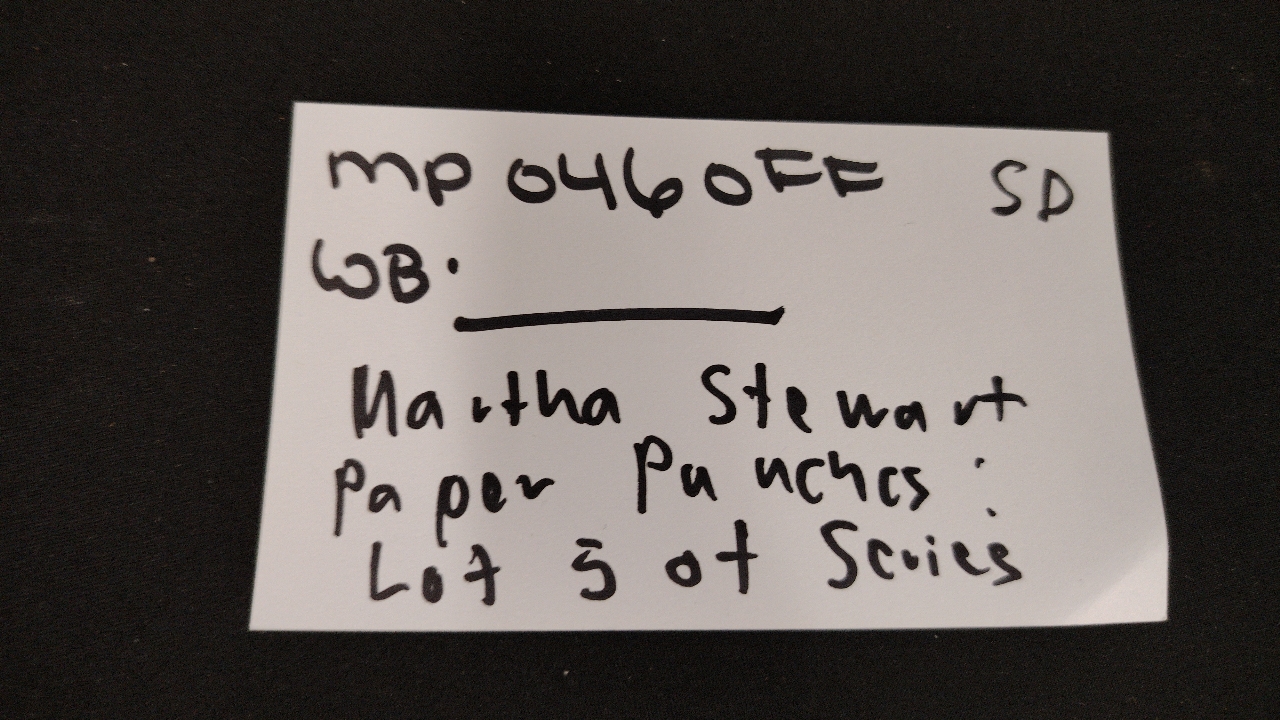 MP 0460FF SD
WB.
Martha Stewart
Paper Punches:
Lot 5 of Series